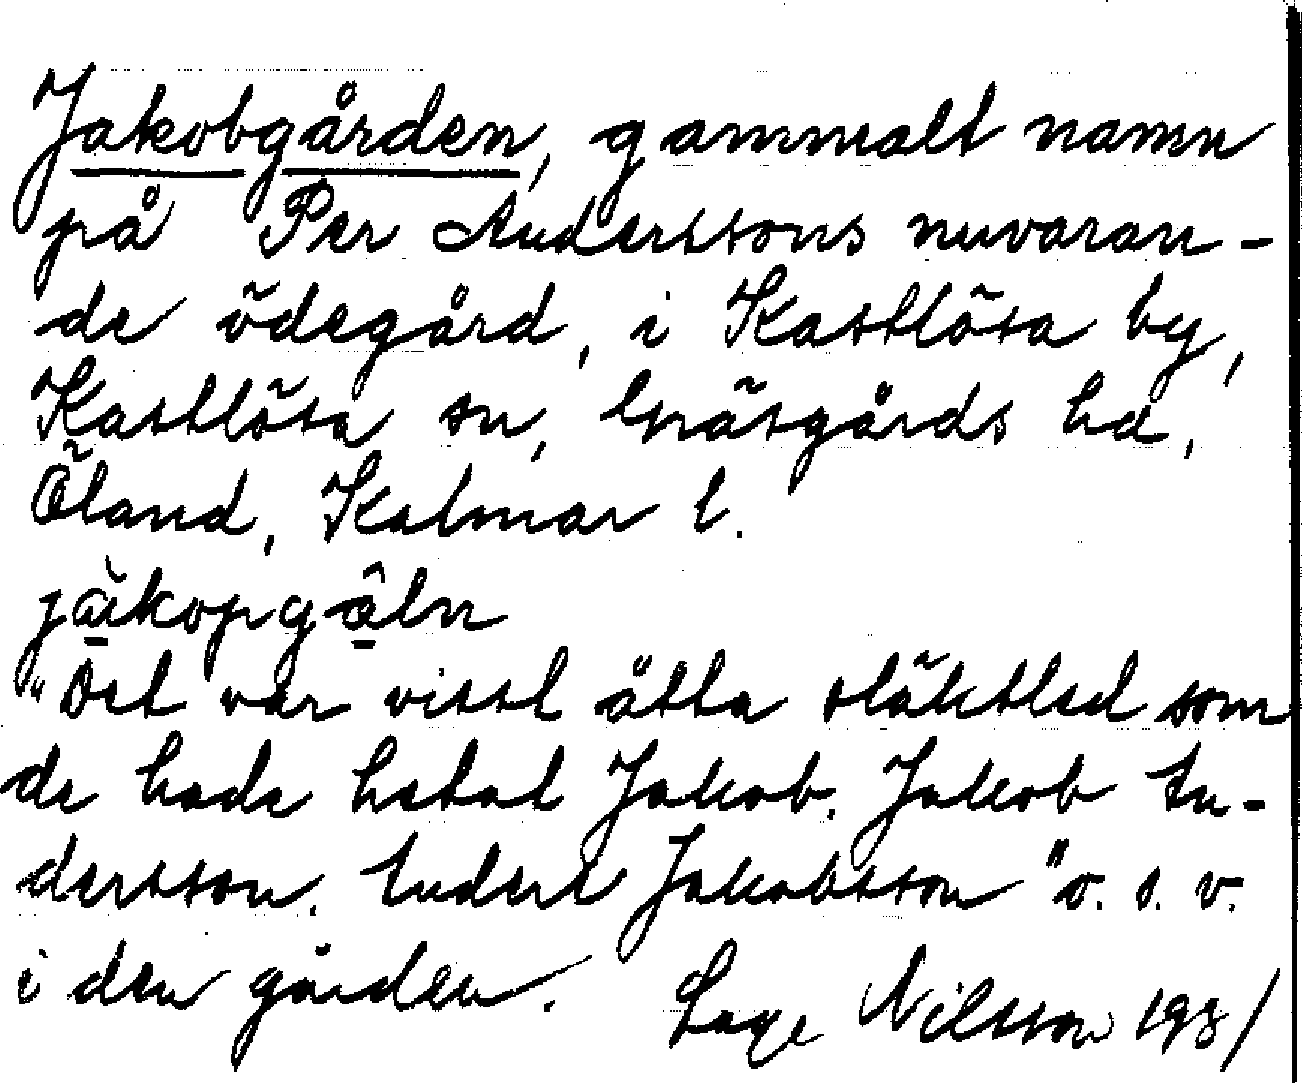 Jakobgården, gammalt namn
på Per Anderssons nuvaran-
de ödegård, i Kastlösa by,
Kastlösa sn, Gräsgårds hd,
Öland, Kalmar l.
jǟkopgâ̱ln
"Det var visst åtta släktled som
de hade hetat Jakob. Jakob An-
dersson. Anders Jakobsson" o. s. v.
i den gården. Lage Nilsson 1931